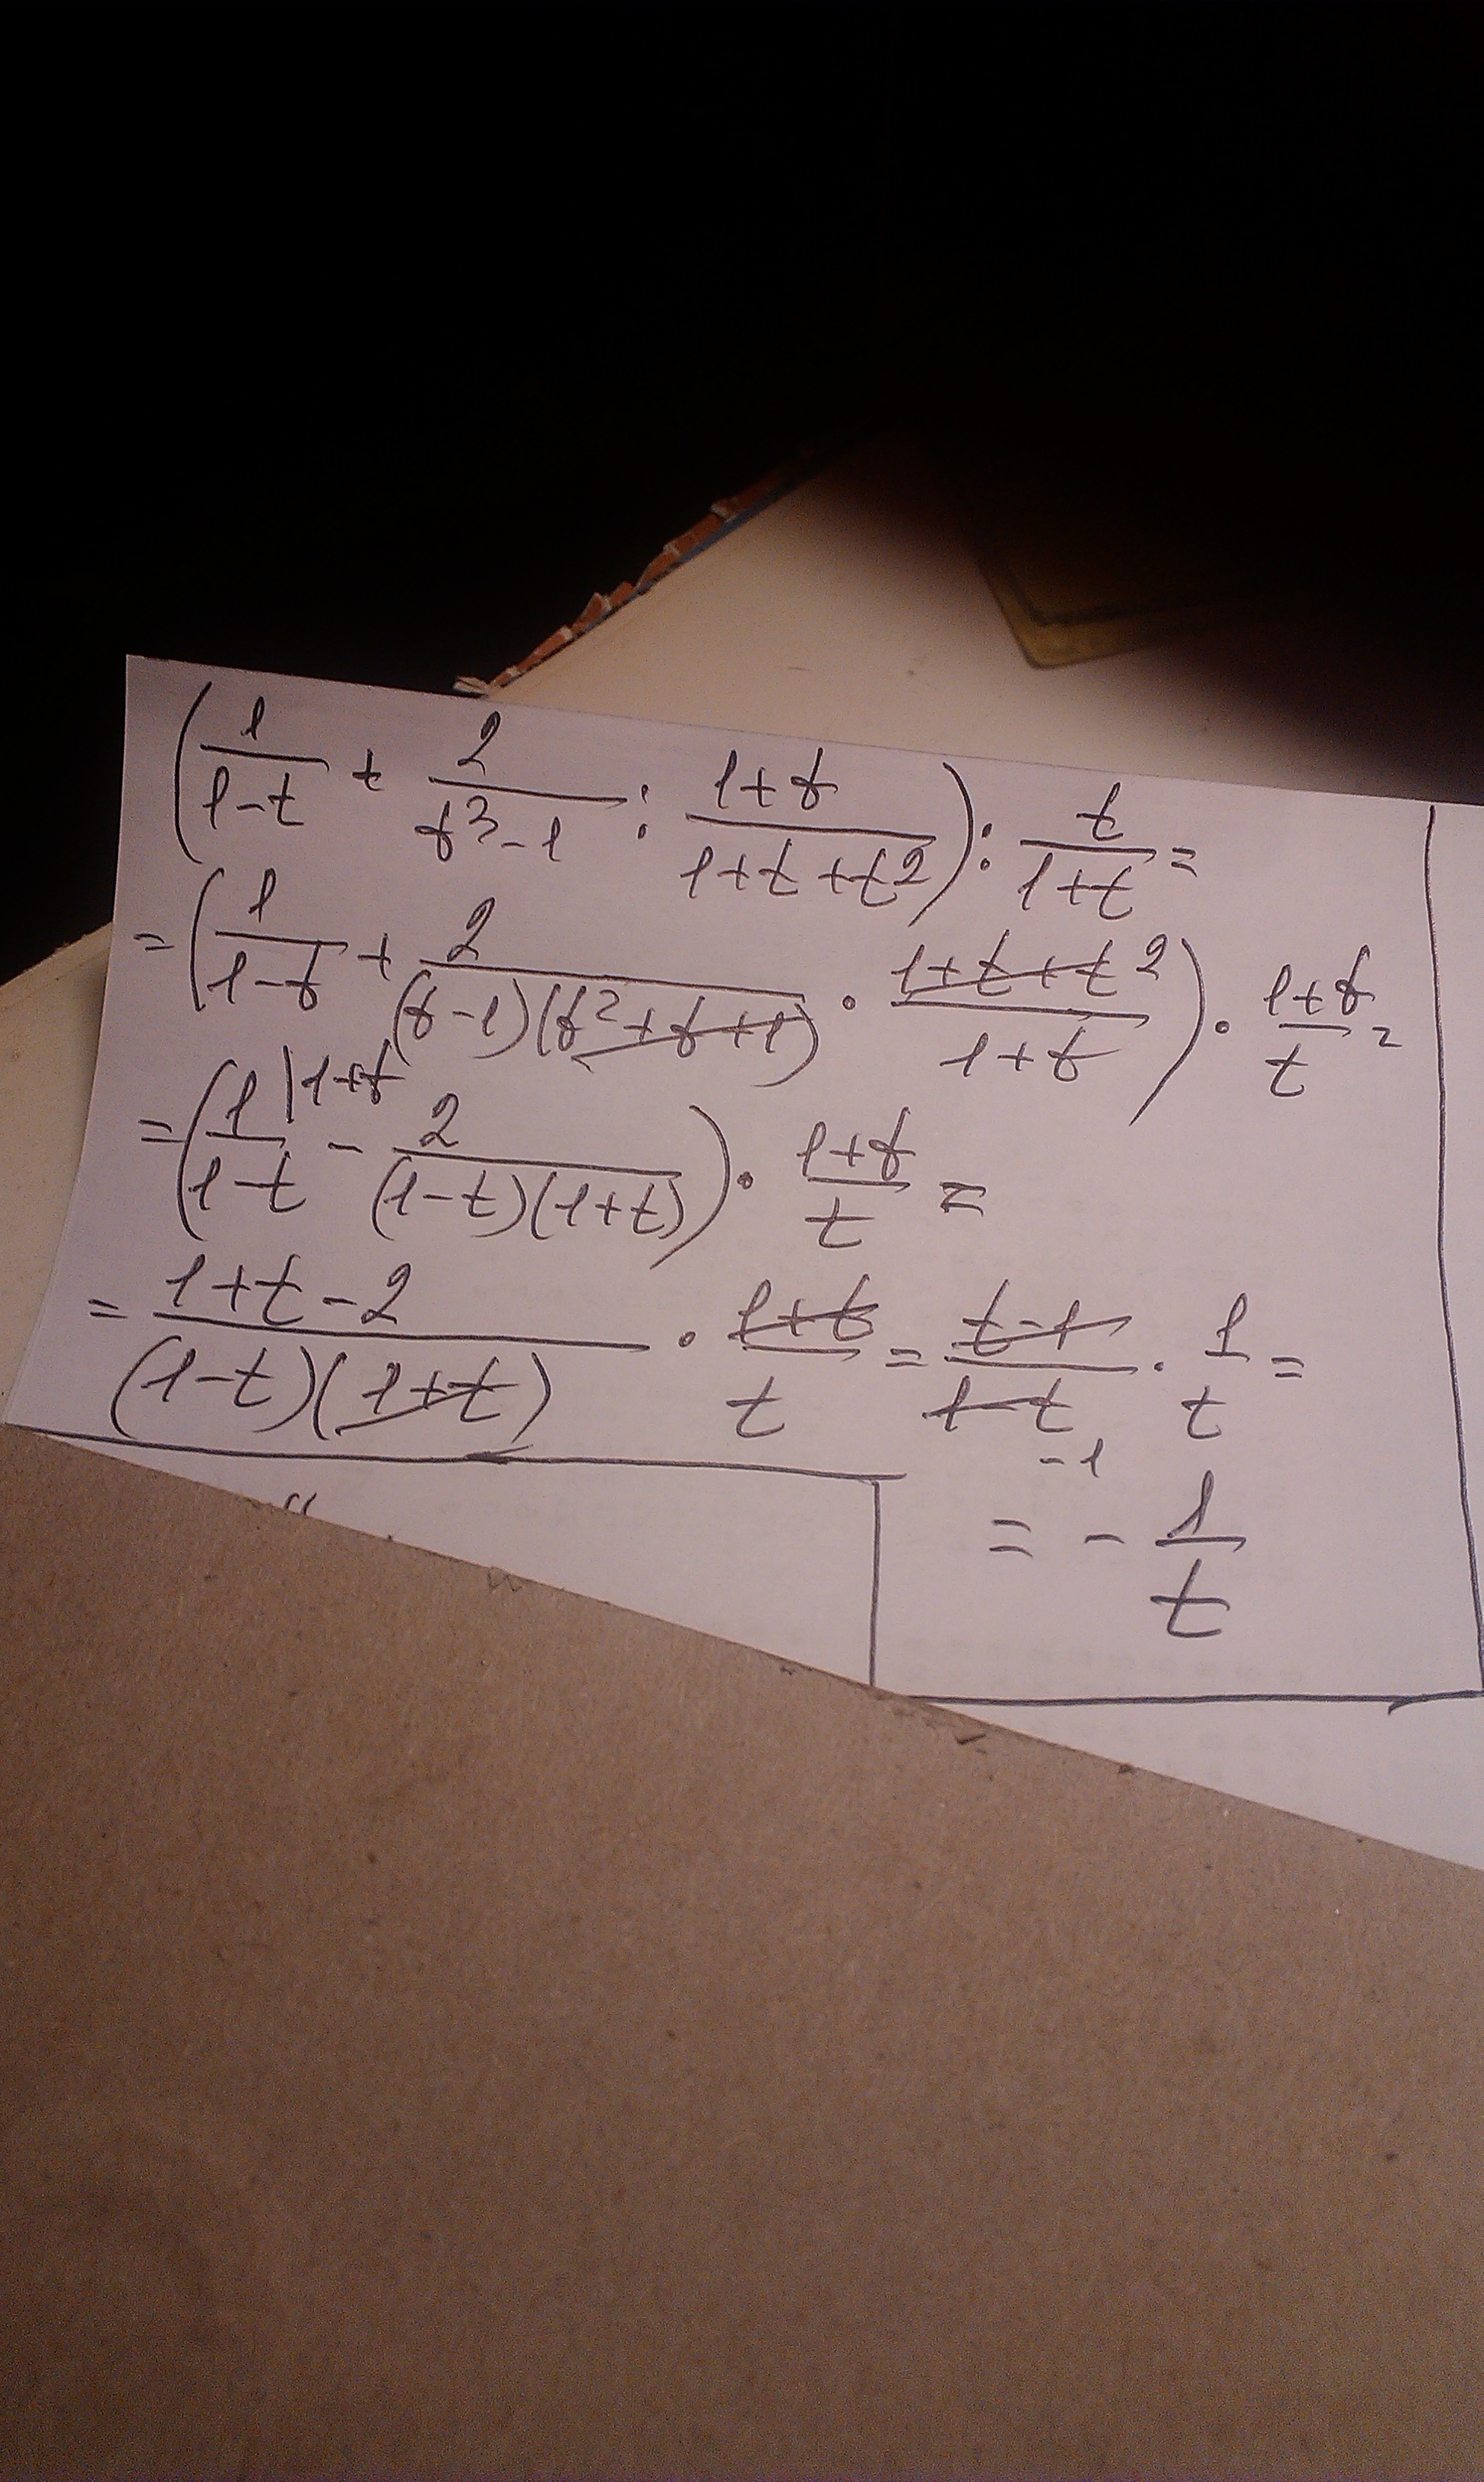 (1/(1-t) + 2/(t³-1) : (1+t)/(1+t+t²)) : t/(1+t) =
= (1/(1-t) + 2/((t-1)(t²+t+1)) · (1+t+t²)/(1+t)) · (1+t)/t =
= (1/(1-t) |1+t - 2/((1-t)(1+t))) · (1+t)/t =
= (1+t-2)/((1-t)(1+t)) · (1+t)/t = (t-1)/(1-t) · 1/t =
-1
= - 1/t